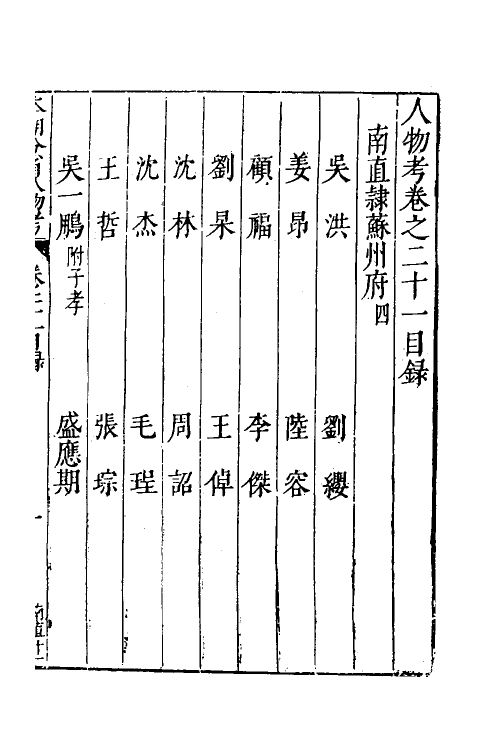 人物考卷之二十一目録
南直隷蘇州府四
吳洪 劉纓
姜昂 陸容
顧福 李傑
劉杲 王倬
沈林 周詔
沈杰 毛珵
王哲 張琮
吳一鵬附子孝 盛應期